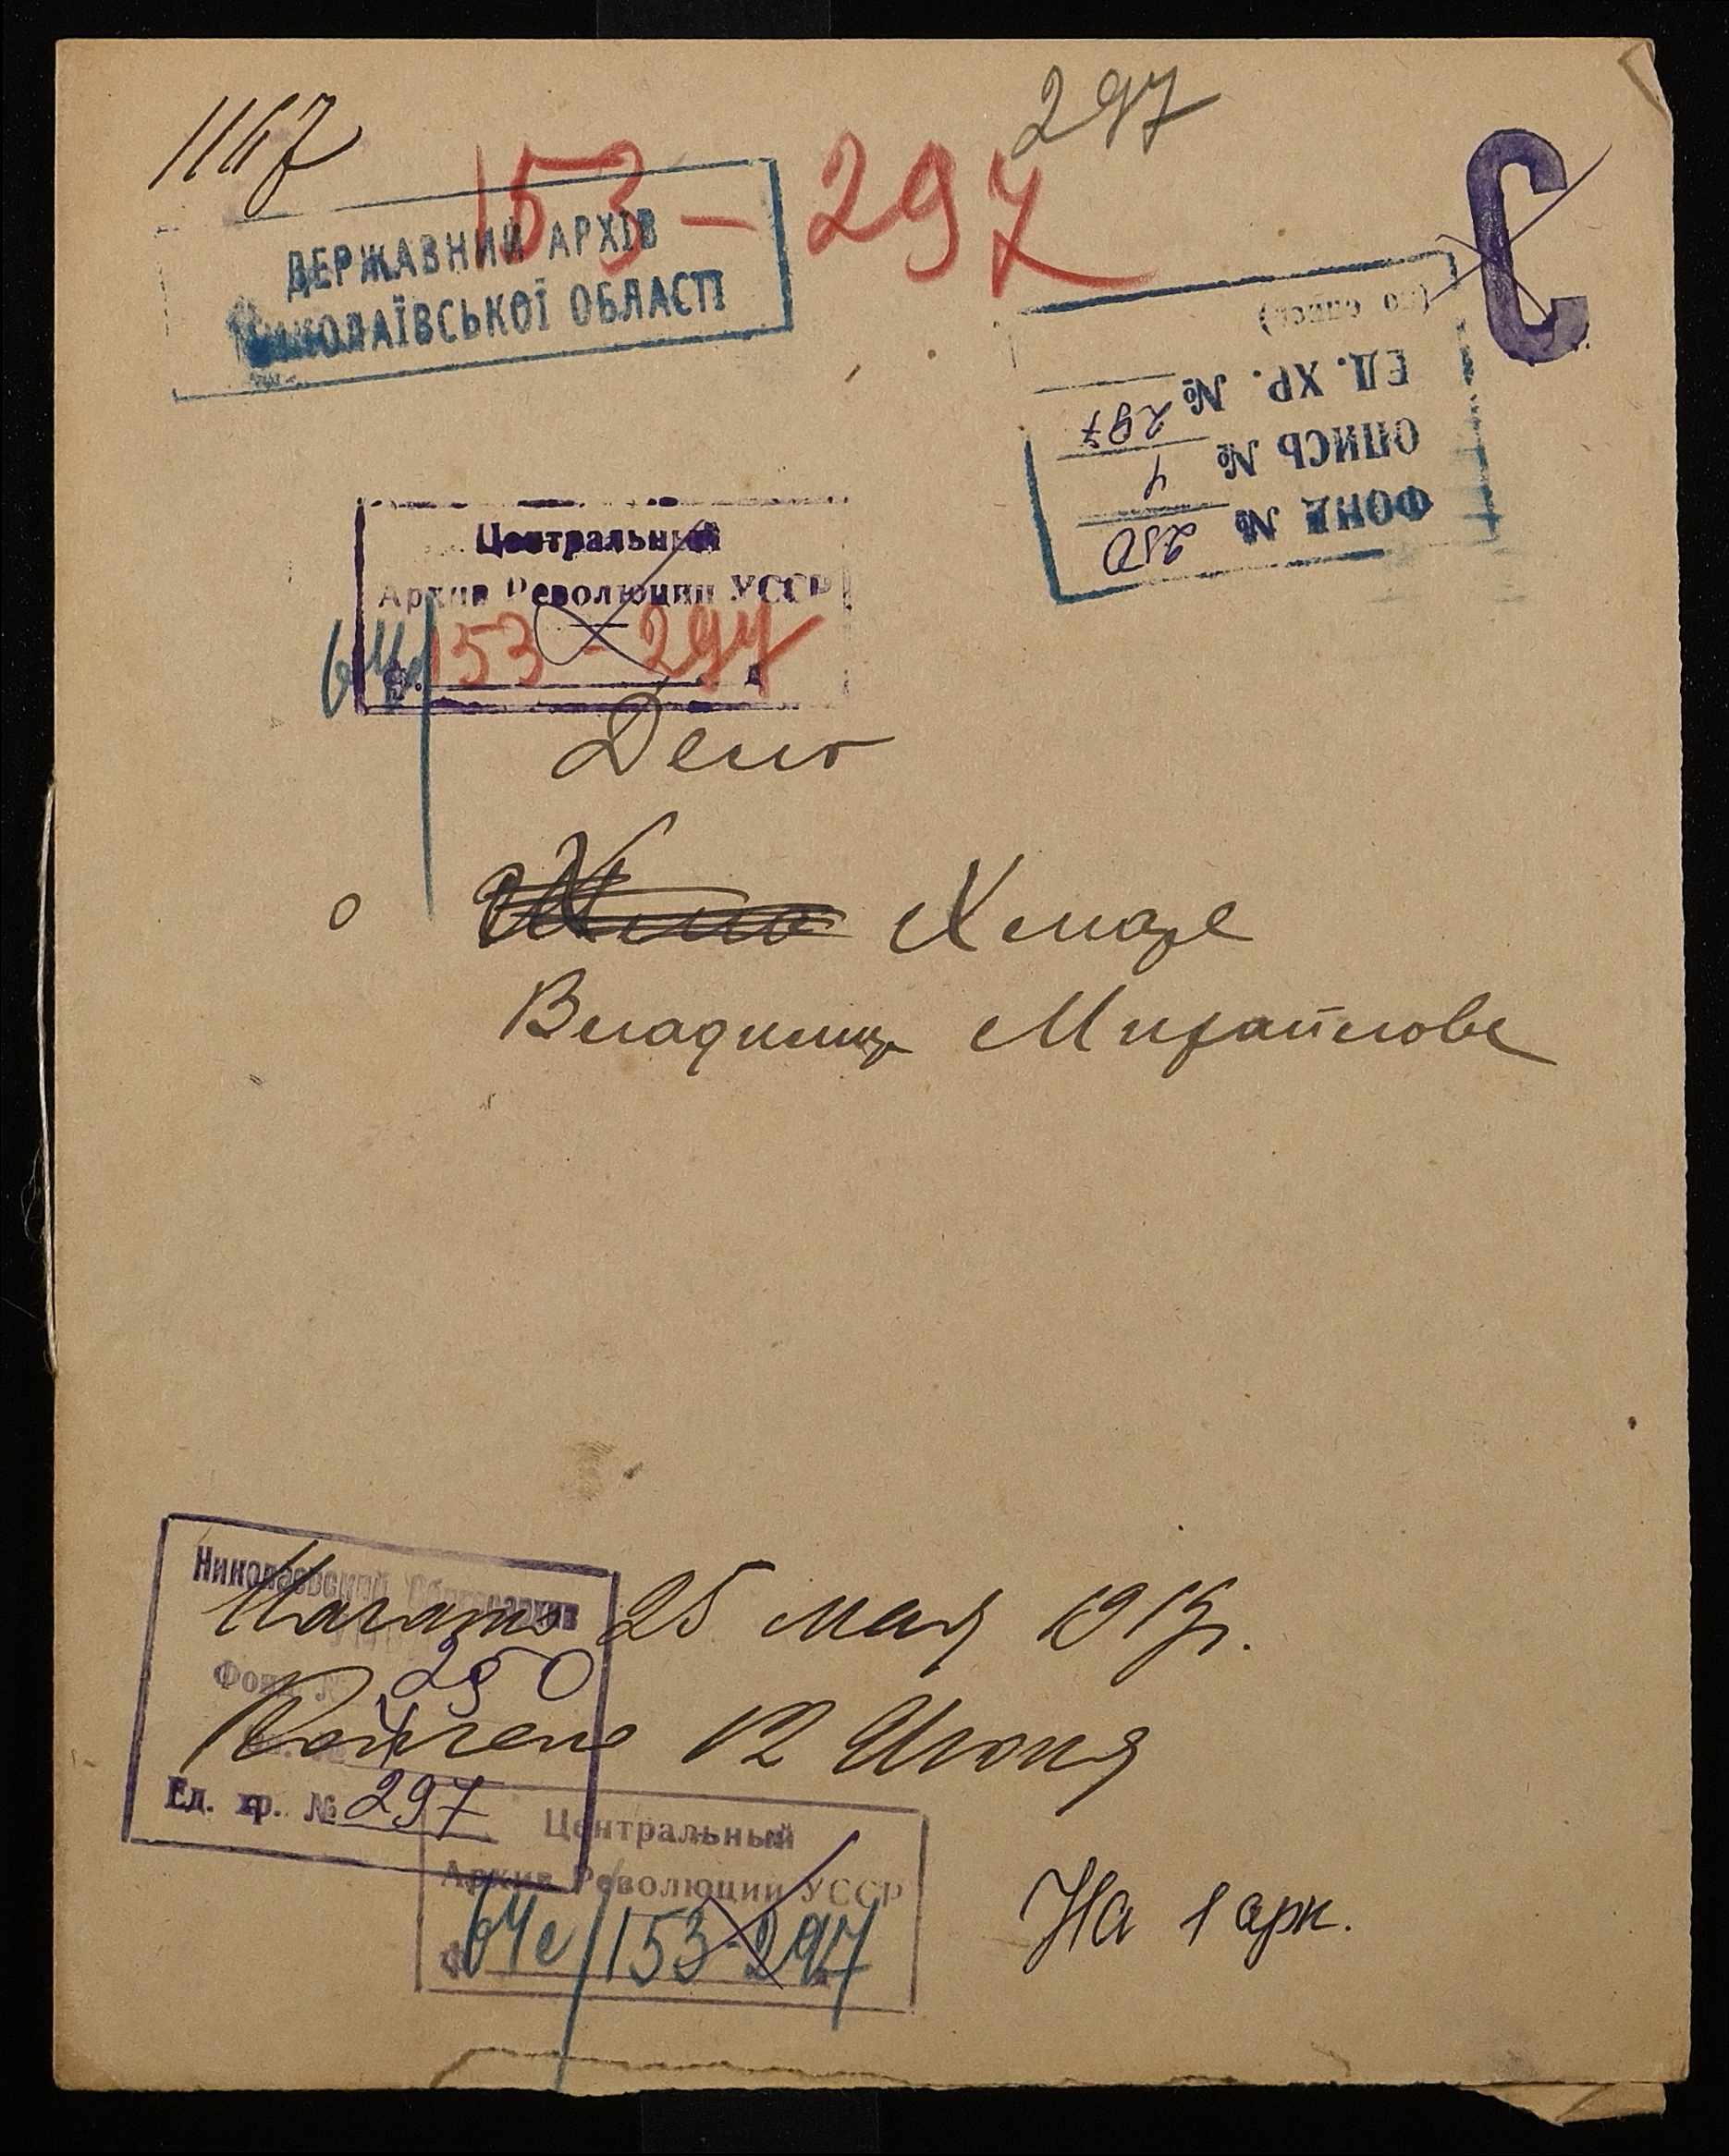 1167
297
153 - 297
ДЕРЖАВНИЙ АРХІВ
МИКОЛАЇВСЬКОЇ ОБЛАСТІ
С
ФОНД № 250
ОПИСЬ № 4
ЕД. ХР. № 297
Центральный
Архив Революции УССР
153 - 297
Дело
о Хмаре
Владимире Михайлове
Николаевский Облгосархив
Начато 25 мая 191
Фонд № 250
Кончено 12 Июня
4
Ед. хр. № 297
Центральный
Архив Революции УССР
64е/153-297
На 1 арк.